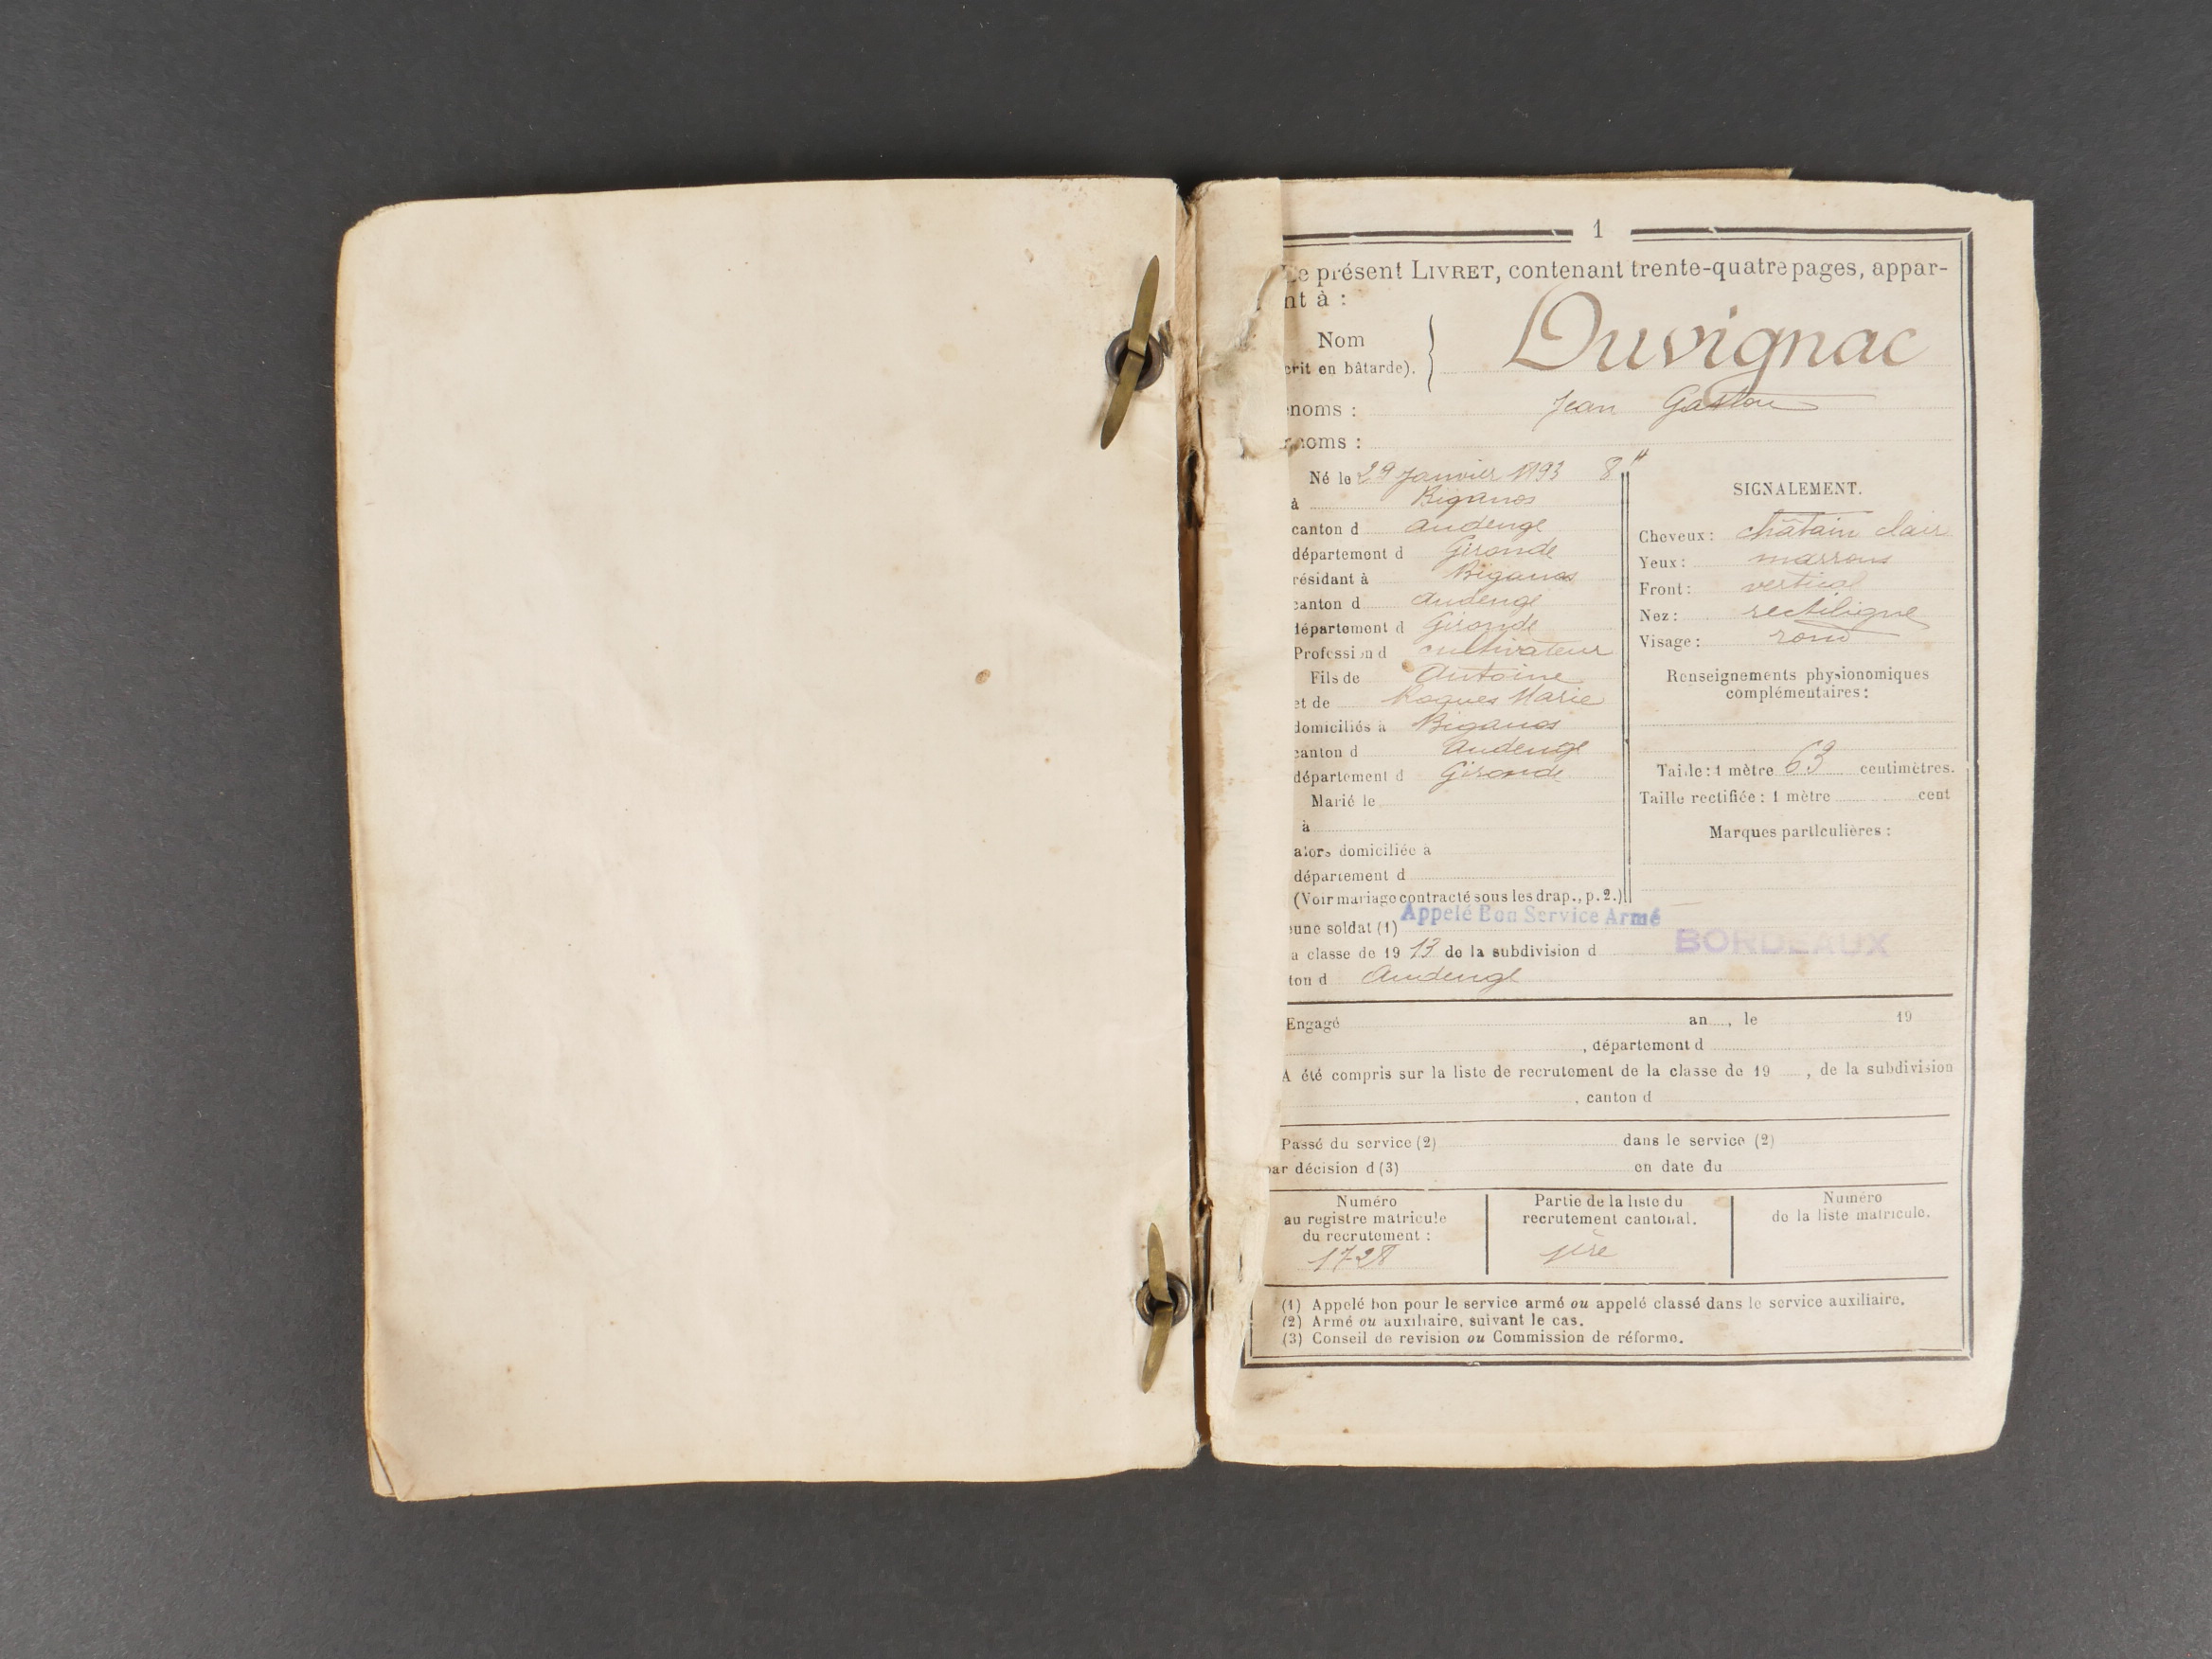 1
Le présent LIVRET, contenant trente-quatre pages, appar-
nt à :
Nom
crit en bâtarde).
Duvignac
noms : Jean Gaston
noms :
Né le 29 Janvier 1893 8H
à Biganos
canton d Audenge
département d Gironde
résidant à Biganos
canton d Audenge
département d Gironde
Profession d cultivateur
Fils de Antoine
et de Roques Marie
domiciliés à Biganos
canton d Audenge
département d Gironde
Marié le
à
alors domiciliée à
département d
(Voir mariage contracté sous les drap., p. 2.)
SIGNALEMENT.
Cheveux : châtain clair
Yeux : marrons
Front : vertical
Nez : rectiligne
Visage : rond
Renseignements physionomiques
complémentaires :
Taille : 1 mètre 63 centimètres.
Taille rectifiée : 1 mètre cent
Marques particulières :
eune soldat (1) Appelé Bon Service Armé
a classe de 19 13 de la subdivision d BORDEAUX
ton d Audenge
Engagé an , le 19
, département d
A été compris sur la liste de recrutement de la classe de 19 , de la subdivision
, canton d
Passé du service (2) dans le service (2)
par décision d (3) en date du
Numéro
au registre matricule
du recrutement :
1728
Partie de la liste du
recrutement cantonal.
1ère
Numéro
de la liste matricule.
(1) Appelé bon pour le service armé ou appelé classé dans le service auxiliaire.
(2) Armé ou auxiliaire, suivant le cas.
(3) Conseil de revision ou Commission de réforme.